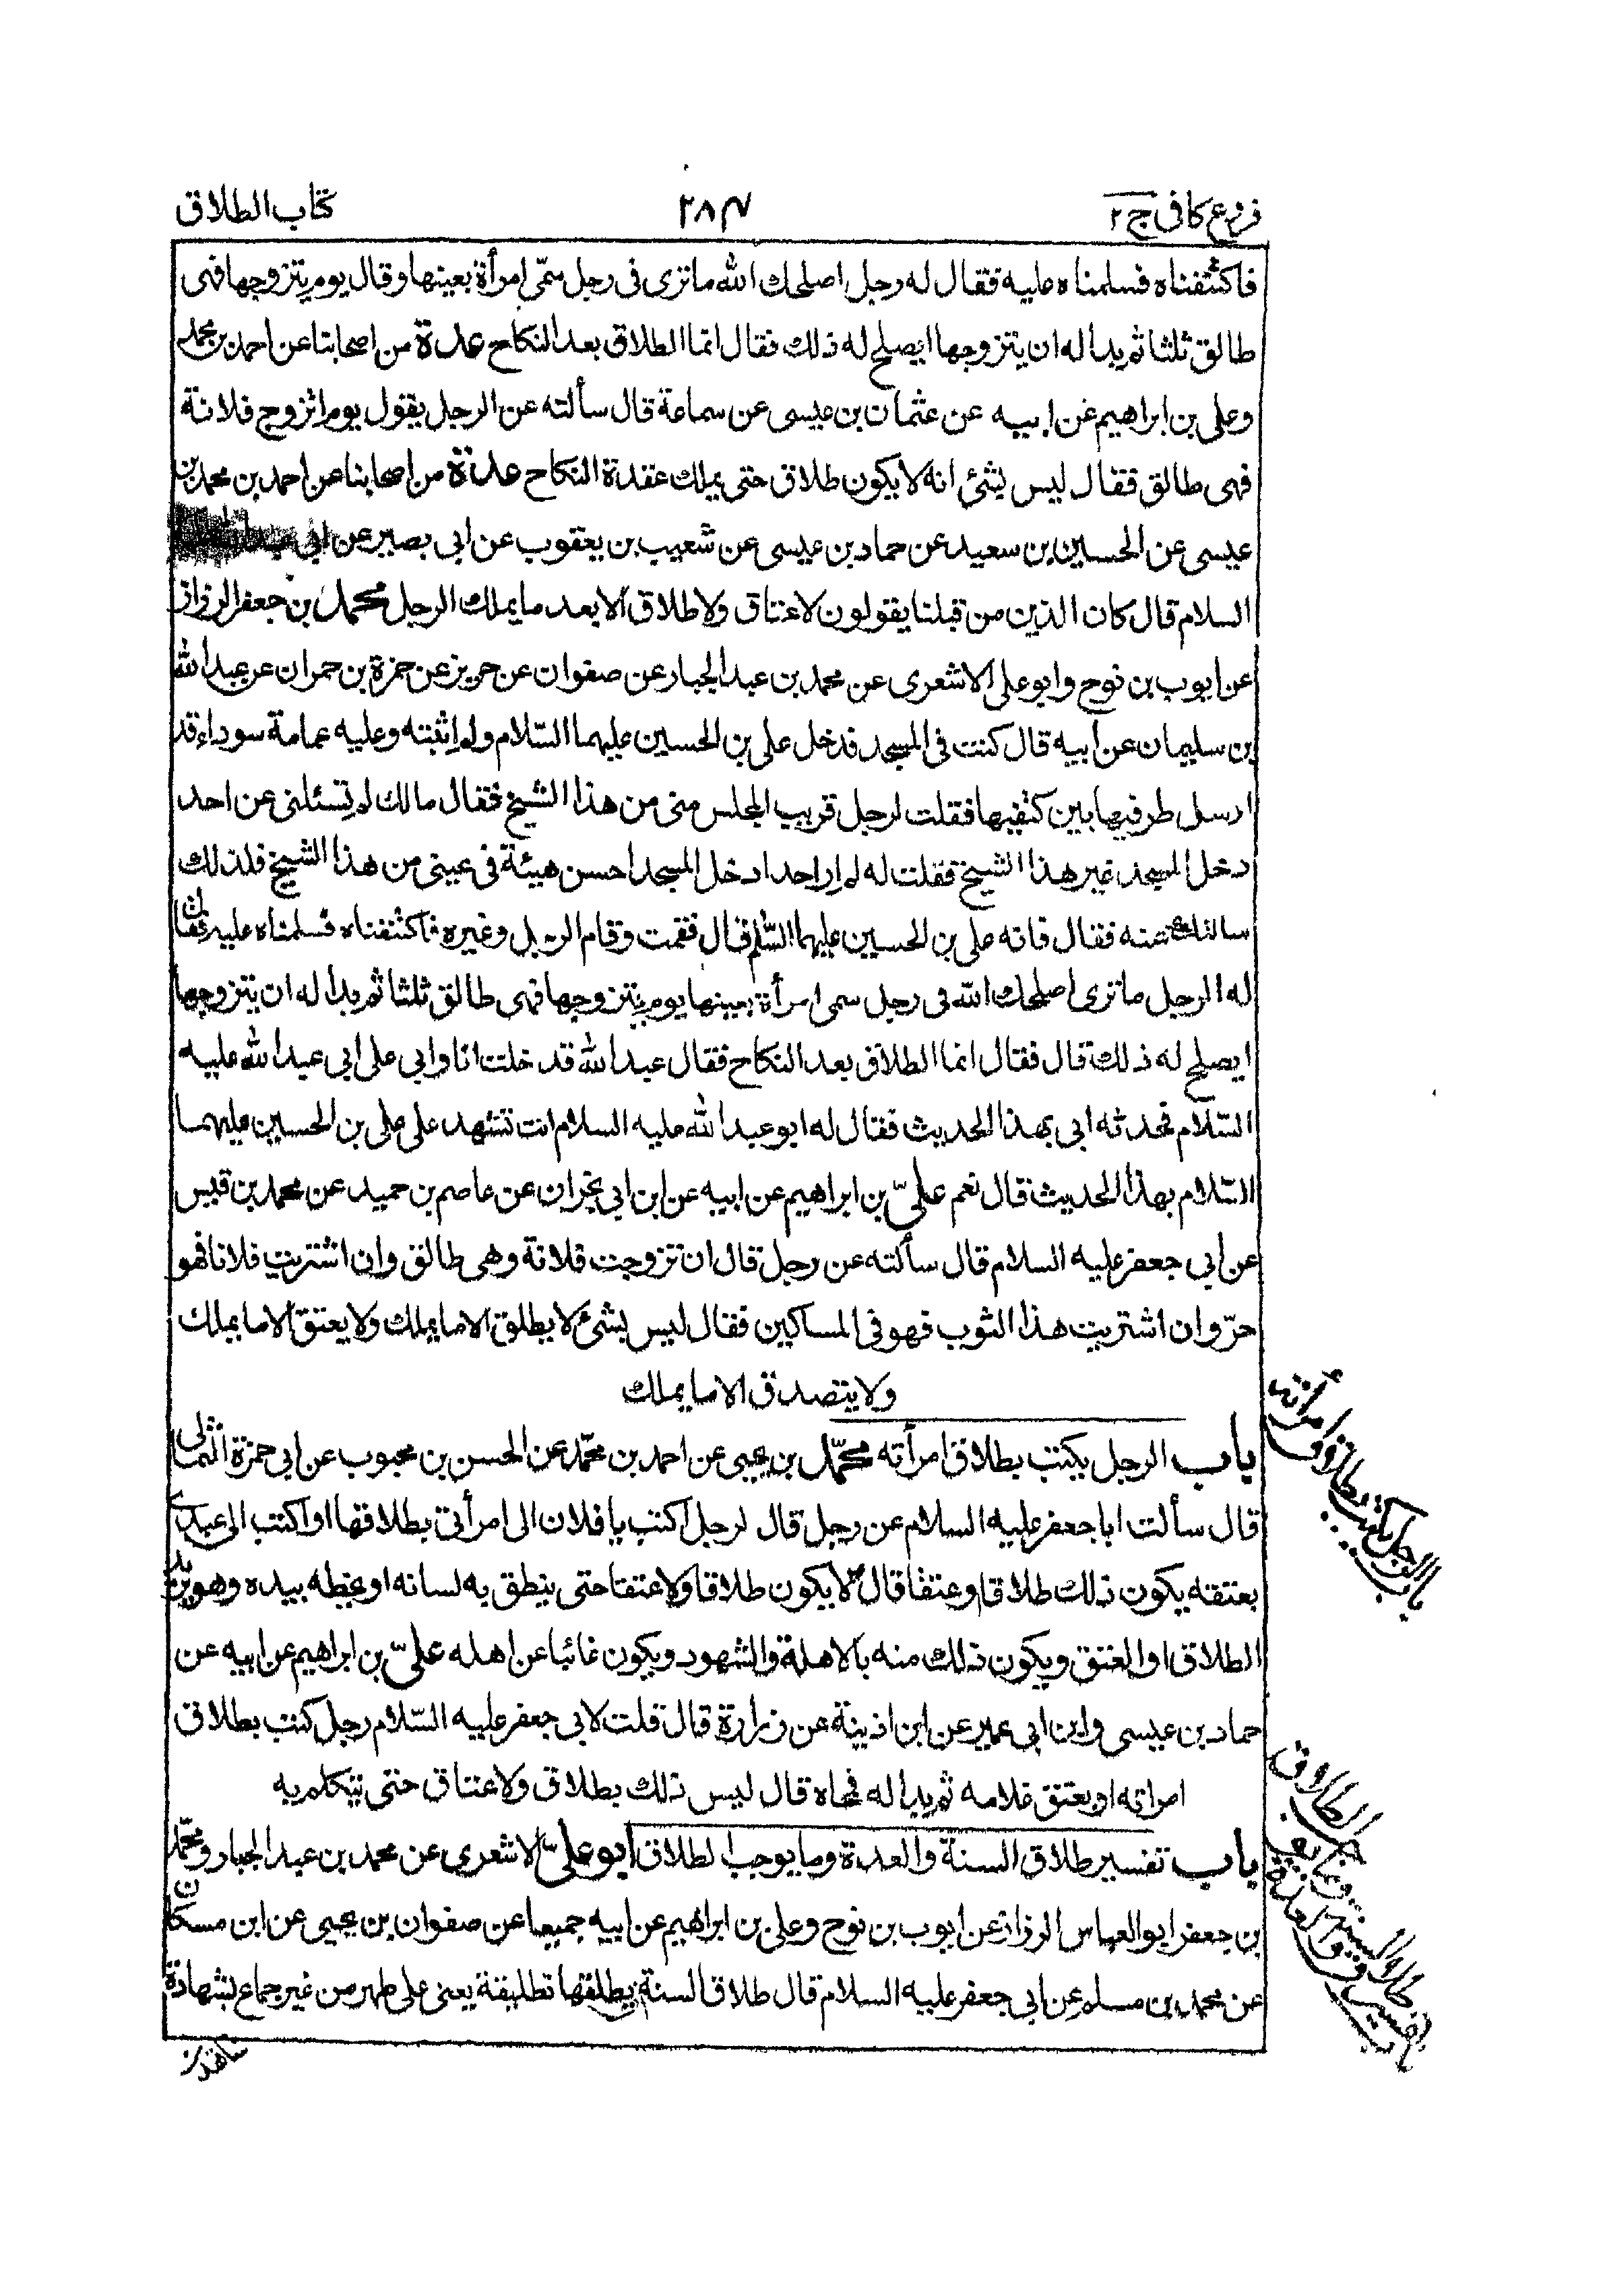 فروع كافى ج ٢
٢٨٣
كتاب الطلاق
فاكتنفناه فسلمنا عليه فقال له رجل اصلحك الله ما ترى فى رجل سمّى امرأة بعينها وقال يوم يتزوجها فهى
طالق ثلثا ثم بدا له ان يتزوجها ايصلح له ذلك فقال انما الطلاق بعد النكاح عدة من اصحابنا عن احمد بن محمد
وعلى بن ابراهيم عن ابيه عن عثمان بن عيسى عن سماعة قال سألته عن الرجل يقول يوم اتزوج فلانة
فهى طالق فقال ليس بشئ انه لا يكون طلاق حتى يملك عقدة النكاح عدة من اصحابنا عن احمد بن محمد بن
عيسى عن الحسين بن سعيد عن حماد بن عيسى عن شعيب بن يعقوب عن ابى بصير عن ابى
السلام قال كان الذين من قبلنا يقولون لا عتاق ولا طلاق الا بعد ما يملك الرجل محمد بن جعفر الرزاز
عن ايوب بن نوح وابو على الاشعرى عن محمد بن عبد الجبار عن صفوان عن حريز عن حمزة بن حمران عن عبد الله
بن سليمان عن ابيه قال كنت فى المسجد فدخل على بن الحسين عليهما السّلام ولم اثبته وعليه عمامة سوداء قد
ارسل طرفيها بين كتفيها فقلت لرجل قريب المجلس منى من هذا الشيخ فقال مالك لم تسئلنى عن احد
دخل المسجد غير هذا الشيخ فقلت له لم ار احدا دخل المسجد احسن هيئة فى عينى من هذا الشيخ فلذلك
سالتك عنه فقال فانه على بن الحسين عليهما السّلم قال فقمت وقام الرجل وغيره فاكتنفناه فسلمناه عليه فقال
له الرجل ما ترى اصلحك الله فى رجل سمى امرأة بعينها يوم يتزوجها فهى طالق ثلثا ثم بدا له ان يتزوجها
ايصلح له ذلك قال فقال انما الطلاق بعد النكاح فقال عبد الله فدخلت انا وابى على ابى عبد الله عليه
السّلام فحدثه ابى بهذا الحديث فقال له ابو عبد الله عليه السلام انت تشهد على على بن الحسين عليهما
السّلام بهذا الحديث قال نعم علىّ بن ابراهيم عن ابيه عن ابن ابى نجران عن عاصم بن حميد عن محمد بن قيس
عن ابى جعفر عليه السلام قال سألته عن رجل قال ان تزوجت فلانة وهى طالق وان اشتريت فلانا فهو
حرّ وان اشتريت هذا الثوب فهو فى المساكين فقال ليس بشئ لا يطلق الا ما يملك ولا يعتق الا ما يملك
ولا يتصدق الا ما يملك
باب الرجل يكتب بطلاق امرأته محمّد بن يحيى عن احمد بن محمّد عن الحسن بن محبوب عن ابى حمزة الثمالى
قال سألت ابا جعفر عليه السلام عن رجل قال لرجل اكتب يا فلان الى امرأتى بطلاقها او اكتب الى عبدى
بعتقه يكون ذلك طلاقا وعتقا قال لا يكون طلاقا ولا عتقا حتى ينطق به لسانه او يخطه بيده وهو يريد
الطلاق او العتق ويكون ذلك منه بالاهلة والشهود ويكون غائبا عن اهله علىّ بن ابراهيم عن ابيه عن
حماد بن عيسى وابن ابى عمير عن ابن اذينة عن زرارة قال قلت لابى جعفر عليه السّلام رجل كتب بطلاق
امراته او بعتق غلامه ثم بدا له فمحاه قال ليس ذلك بطلاق ولا عتاق حتى يتكلم به
باب تفسير طلاق السنة والعدة وما يوجب الطلاق ابو علىّ الاشعرى عن محمد بن عبد الجبار ومحمّد
بن جعفر ابو العباس الرزاز عن ايوب بن نوح وعلى بن ابراهيم عن ابيه جميعا عن صفوان بن يحيى عن ابن مسكان
عن محمد بن مسلم عن ابى جعفر عليه السلام قال طلاق السنة يطلقها تطليقة يعنى على طهر من غير جماع بشهادة
باب الرجل يكتب بطلاق امرأته
باب تفسير طلاق السنة والعدة
الطلاق